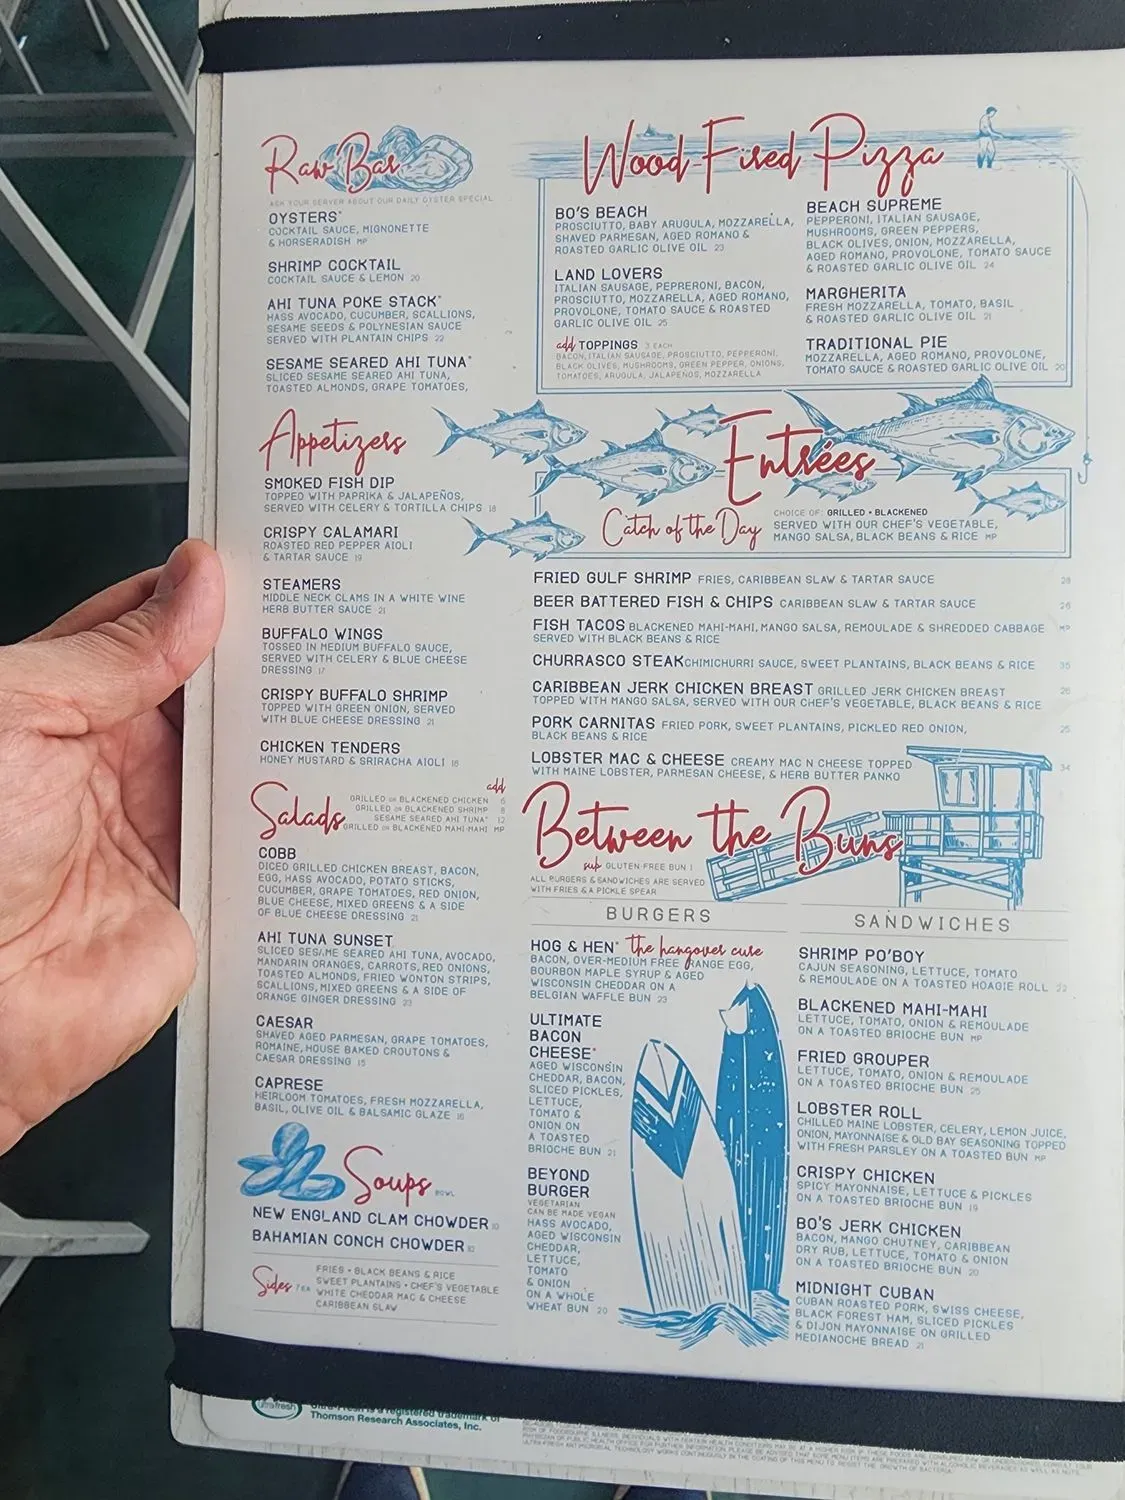 Raw Bar
ASK YOUR SERVER ABOUT OUR DAILY OYSTER SPECIAL
OYSTERS*
COCKTAIL SAUCE, MIGNONETTE
& HORSERADISH MP
SHRIMP COCKTAIL
COCKTAIL SAUCE & LEMON 20
AHI TUNA POKE STACK*
HASS AVOCADO, CUCUMBER, SCALLIONS,
SESAME SEEDS & POLYNESIAN SAUCE
SERVED WITH PLANTAIN CHIPS 22
SESAME SEARED AHI TUNA*
SLICED SESAME SEARED AHI TUNA,
TOASTED ALMONDS, GRAPE TOMATOES,
Appetizers
SMOKED FISH DIP
TOPPED WITH PAPRIKA & JALAPEÑOS,
SERVED WITH CELERY & TORTILLA CHIPS 18
CRISPY CALAMARI
ROASTED RED PEPPER AIOLI
& TARTAR SAUCE 19
STEAMERS
MIDDLE NECK CLAMS IN A WHITE WINE
HERB BUTTER SAUCE 21
BUFFALO WINGS
TOSSED IN MEDIUM BUFFALO SAUCE,
SERVED WITH CELERY & BLUE CHEESE
DRESSING 17
CRISPY BUFFALO SHRIMP
TOPPED WITH GREEN ONION, SERVED
WITH BLUE CHEESE DRESSING 21
CHICKEN TENDERS
HONEY MUSTARD & SRIRACHA AIOLI 16
Salads
add
GRILLED OR BLACKENED CHICKEN 6
GRILLED OR BLACKENED SHRIMP 8
SESAME SEARED AHI TUNA* 12
GRILLED OR BLACKENED MAHI-MAHI MP
COBB
DICED GRILLED CHICKEN BREAST, BACON,
EGG, HASS AVOCADO, POTATO STICKS,
CUCUMBER, GRAPE TOMATOES, RED ONION,
BLUE CHEESE, MIXED GREENS & A SIDE
OF BLUE CHEESE DRESSING 21
AHI TUNA SUNSET
SLICED SESAME SEARED AHI TUNA, AVOCADO,
MANDARIN ORANGES, CARROTS, RED ONIONS,
TOASTED ALMONDS, FRIED WONTON STRIPS,
SCALLIONS, MIXED GREENS & A SIDE OF
ORANGE GINGER DRESSING 23
CAESAR
SHAVED AGED PARMESAN, GRAPE TOMATOES,
ROMAINE, HOUSE BAKED CROUTONS &
CAESAR DRESSING 15
CAPRESE
HEIRLOOM TOMATOES, FRESH MOZZARELLA,
BASIL, OLIVE OIL & BALSAMIC GLAZE 16
Soups BOWL
NEW ENGLAND CLAM CHOWDER 10
BAHAMIAN CONCH CHOWDER
Sides 7 EA
FRIES • BLACK BEANS & RICE
SWEET PLANTAINS • CHEF'S VEGETABLE
WHITE CHEDDAR MAC & CHEESE
CARIBBEAN SLAW
Wood-Fired Pizza
BO'S BEACH
PROSCIUTTO, BABY ARUGULA, MOZZARELLA,
SHAVED PARMESAN, AGED ROMANO &
ROASTED GARLIC OLIVE OIL 23
LAND LOVERS
ITALIAN SAUSAGE, PEPRERONI, BACON,
PROSCIUTTO, MOZZARELLA, AGED ROMANO,
PROVOLONE, TOMATO SAUCE & ROASTED
GARLIC OLIVE OIL 25
add TOPPINGS 3 EACH
BACON, ITALIAN SAUSAGE, PROSCIUTTO, PEPPERONI,
BLACK OLIVES, MUSHROOMS, GREEN PEPPER, ONIONS,
TOMATOES, ARUGULA, JALAPEÑOS, MOZZARELLA
BEACH SUPREME
PEPPERONI, ITALIAN SAUSAGE,
MUSHROOMS, GREEN PEPPERS,
BLACK OLIVES, ONION, MOZZARELLA,
AGED ROMANO, PROVOLONE, TOMATO SAUCE
& ROASTED GARLIC OLIVE OIL 24
MARGHERITA
FRESH MOZZARELLA, TOMATO, BASIL
& ROASTED GARLIC OLIVE OIL 21
TRADITIONAL PIE
MOZZARELLA, AGED ROMANO, PROVOLONE,
TOMATO SAUCE & ROASTED GARLIC OLIVE OIL 20
Entrées
Catch of the Day
CHOICE OF: GRILLED • BLACKENED
SERVED WITH OUR CHEF'S VEGETABLE,
MANGO SALSA, BLACK BEANS & RICE MP
FRIED GULF SHRIMP FRIES, CARIBBEAN SLAW & TARTAR SAUCE 28
BEER BATTERED FISH & CHIPS CARIBBEAN SLAW & TARTAR SAUCE 26
FISH TACOS BLACKENED MAHI-MAHI, MANGO SALSA, REMOULADE & SHREDDED CABBAGE MP
SERVED WITH BLACK BEANS & RICE
CHURRASCO STEAK CHIMICHURRI SAUCE, SWEET PLANTAINS, BLACK BEANS & RICE 35
CARIBBEAN JERK CHICKEN BREAST GRILLED JERK CHICKEN BREAST 26
TOPPED WITH MANGO SALSA, SERVED WITH OUR CHEF'S VEGETABLE, BLACK BEANS & RICE
PORK CARNITAS FRIED PORK, SWEET PLANTAINS, PICKLED RED ONION, 25
BLACK BEANS & RICE
LOBSTER MAC & CHEESE CREAMY MAC N CHEESE TOPPED 34
WITH MAINE LOBSTER, PARMESAN CHEESE, & HERB BUTTER PANKO
Between the Buns
sub GLUTEN FREE BUN 1
ALL BURGERS & SANDWICHES ARE SERVED
WITH FRIES & A PICKLE SPEAR
BURGERS
HOG & HEN* the hangover cure
BACON, OVER-MEDIUM FREE RANGE EGG,
BOURBON MAPLE SYRUP & AGED
WISCONSIN CHEDDAR ON A
BELGIAN WAFFLE BUN 23
ULTIMATE
BACON
CHEESE*
AGED WISCONSIN
CHEDDAR, BACON,
SLICED PICKLES,
LETTUCE,
TOMATO &
ONION ON
A TOASTED
BRIOCHE BUN 21
BEYOND
BURGER
VEGETARIAN
CAN BE MADE VEGAN
HASS AVOCADO,
AGED WISCONSIN
CHEDDAR,
LETTUCE,
TOMATO
& ONION
ON A WHOLE
WHEAT BUN 20
SANDWICHES
SHRIMP PO'BOY
CAJUN SEASONING, LETTUCE, TOMATO
& REMOULADE ON A TOASTED HOAGIE ROLL 22
BLACKENED MAHI-MAHI
LETTUCE, TOMATO, ONION & REMOULADE
ON A TOASTED BRIOCHE BUN MP
FRIED GROUPER
LETTUCE, TOMATO, ONION & REMOULADE
ON A TOASTED BRIOCHE BUN 25
LOBSTER ROLL
CHILLED MAINE LOBSTER, CELERY, LEMON JUICE,
ONION, MAYONNAISE & OLD BAY SEASONING TOPPED
WITH FRESH PARSLEY ON A TOASTED BUN MP
CRISPY CHICKEN
SPICY MAYONNAISE, LETTUCE & PICKLES
ON A TOASTED BRIOCHE BUN 19
BO'S JERK CHICKEN
BACON, MANGO CHUTNEY, CARIBBEAN
DRY RUB, LETTUCE, TOMATO & ONION
ON A TOASTED BRIOCHE BUN 20
MIDNIGHT CUBAN
CUBAN ROASTED PORK, SWISS CHEESE,
BLACK FOREST HAM, SLICED PICKLES
& DIJON MAYONNAISE ON GRILLED
MEDIANOCHE BREAD 21
ultrafresh
Ultra-Fresh is a registered trademark of
Thomson Research Associates, Inc.